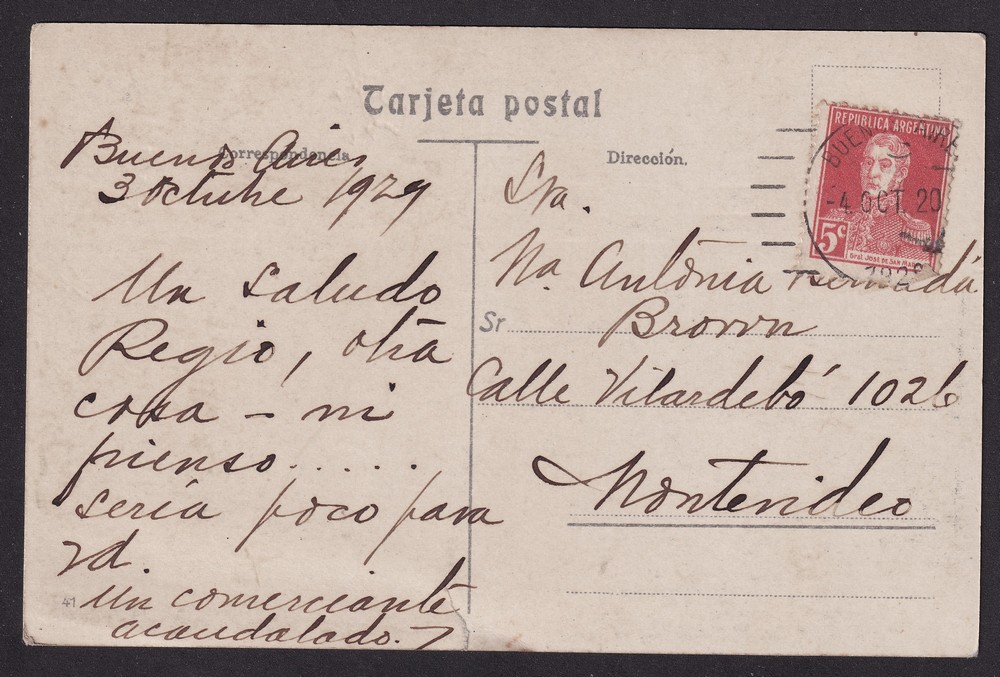 Tarjeta postal
Correspondencia
Buenos Aires
3 Octubre 1929
Un saludo
Regio, otra
cosa - ni
pienso.....
sería poco para
Ud.
Un comerciante
acaudalado.
41
Dirección.
Sta.
Ma. Antonia
Sr
Brown
Calle Vilardebó 1026
Montevideo
REPUBLICA ARGENTINA
5c
Gral. José de San Martín
BUENOS AIRES
-4 OCT 20